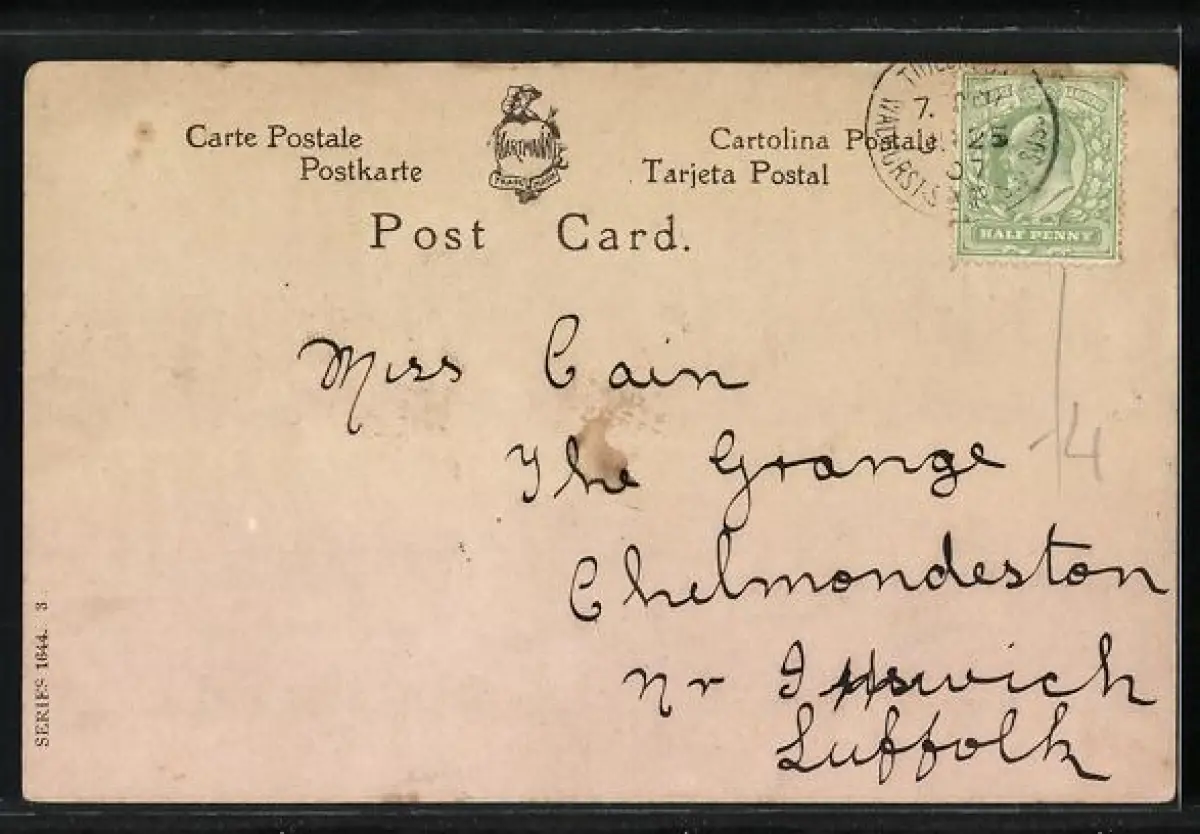 Carte Postale
Postkarte
HARTMANN
TRADE MARK
Cartolina Postale
Tarjeta Postal
Post Card.
7.
25
07
HALF PENNY
Miss Cain
The Grange
Chelmondeston
nr Ipswich
Suffolk
4
SERIES 1644. 3